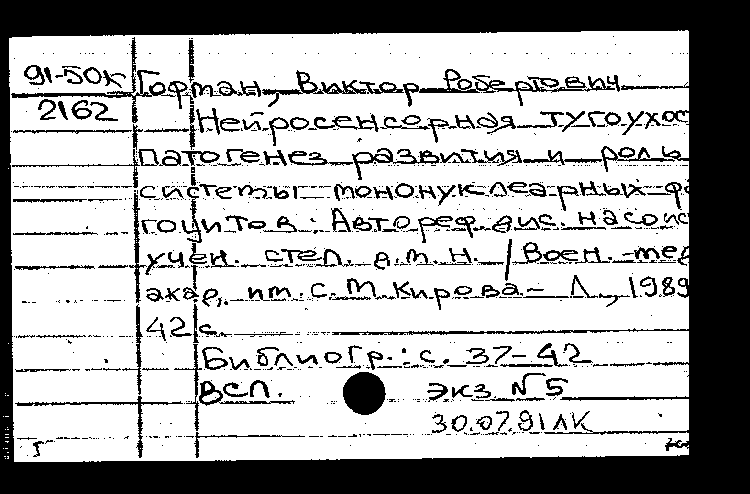 91-50к Гофман, Виктор Робертович
2162 Нейросенсорная тугоухос
патогенез развития и роль
системы мононуклеарных фа
гоцитов: Автореф. дис. на соис
учен. степ. д.м.н. / Воен.-мед
акад. им. С.М. Кирова - Л., 1989
42 с.
Библиогр.: с. 37-42
ВСЛ. экз N5
30.07.91 ЛК